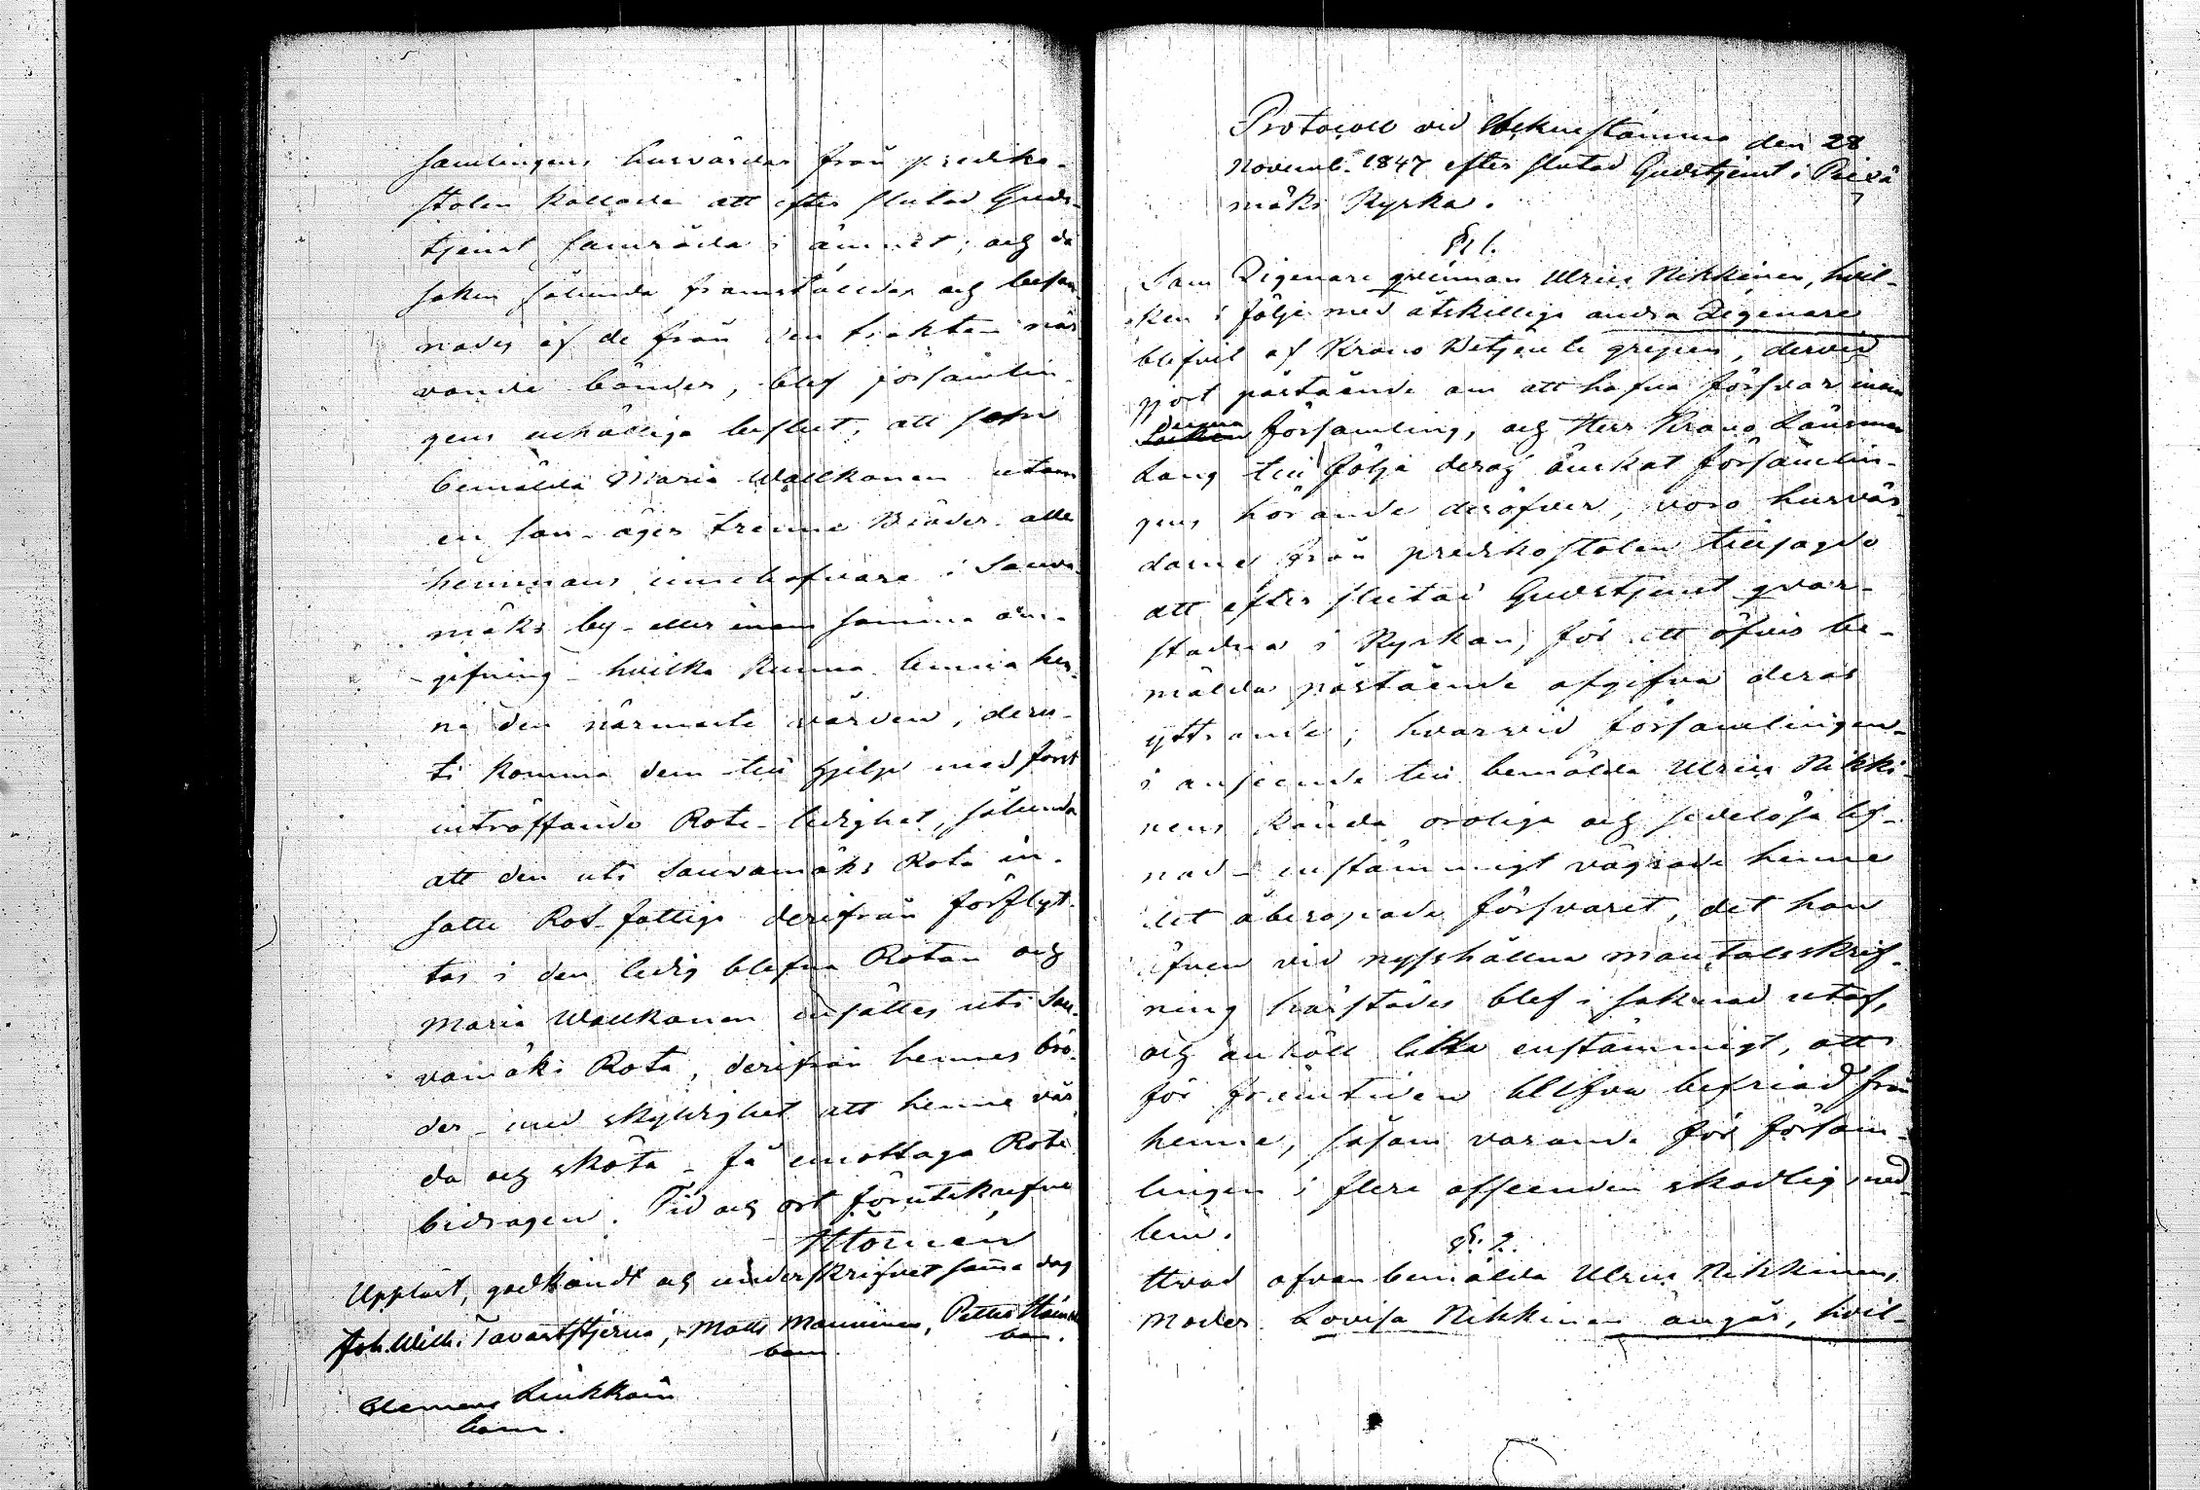 samlingens husvärdar från predik-
stolen kallade att efter slutad Guds-
tjenst samråda i ämnet; och då
saken sålunda framställdes och besan-
nades af de från den trakten när-
varande bönder, blef församlin-
gens enhällige beslut, att som
bemälda Maria Wallkonen utom
en son äger trenne Bröder alle
hemmans innehafvare i Sauva-
mäki by - eller inom samma om-
gifning - hvilka kunna lemna hen-
ne den närmaste vården, deru-
ti komma dem till hjelp med först
inträffande Rote-ledighet, sålunda
att den uti Sauvamäki Rota in-
satte Rot-fattige derifrån förflyt-
tas i den ledig blefne Rotan och
Maria Wallkonen insättes uti Sau-
vamäki Rota, derifrån hennes brö-
der - med skyldighet att henne vår-
da och sköta - få emottaga Rote
bidragen. Tid och ort förutskrefne
Uppläst, godkändt och underskrifvet samma dag
Joh. Wilh. Tavaststjerna, Matts Manninen, Petter
bom. bom.
Clemens Liukkoin
bom.
Protocoll vid Sockenstämma den 28
Novemb. 1847 efter slutad Gudstjenst i Piexä
mäki Kyrka.
§ 1.
Som Zigenare qvinnan Ulrica Nikkinen, hvil-
ken i följe med åtskillige andra Zigenare
blifvit af Krono Betjente gripen, dervid
gjort påstående om att hafva försvar inom
denna församling, och Herr Krono Länsman
Lang till följe deraf äskat församlin-
gens hörande deröfver, voro husvär-
darne från predikostolen tillsagde
att efter slutad Gudstjenst qvar-
stadna i Kyrkan, för att öfver be-
mälda påstående afgifva deras
yttrande; hvarvid församlingen -
i anseende till bemälda Ulrica Nikki-
nens kända oroliga och sedelösa lef-
nad - enstämmigt vägrade henne
det åberopade försvaret, det hon
äfven vid nysshållne mantalsskrif-
ning härstädes blef i saknad utaf,
och anhöll lika enstämmigt, att
för framtiden blifva befriad från
henne, såsom varande för försam-
lingen i flere afseenden skadlig med-
lem.
§. 2.
Hvad ofvanbemälda Ulrica Nikkinens
Moder Lovisa Nikkinen angår, hvil-